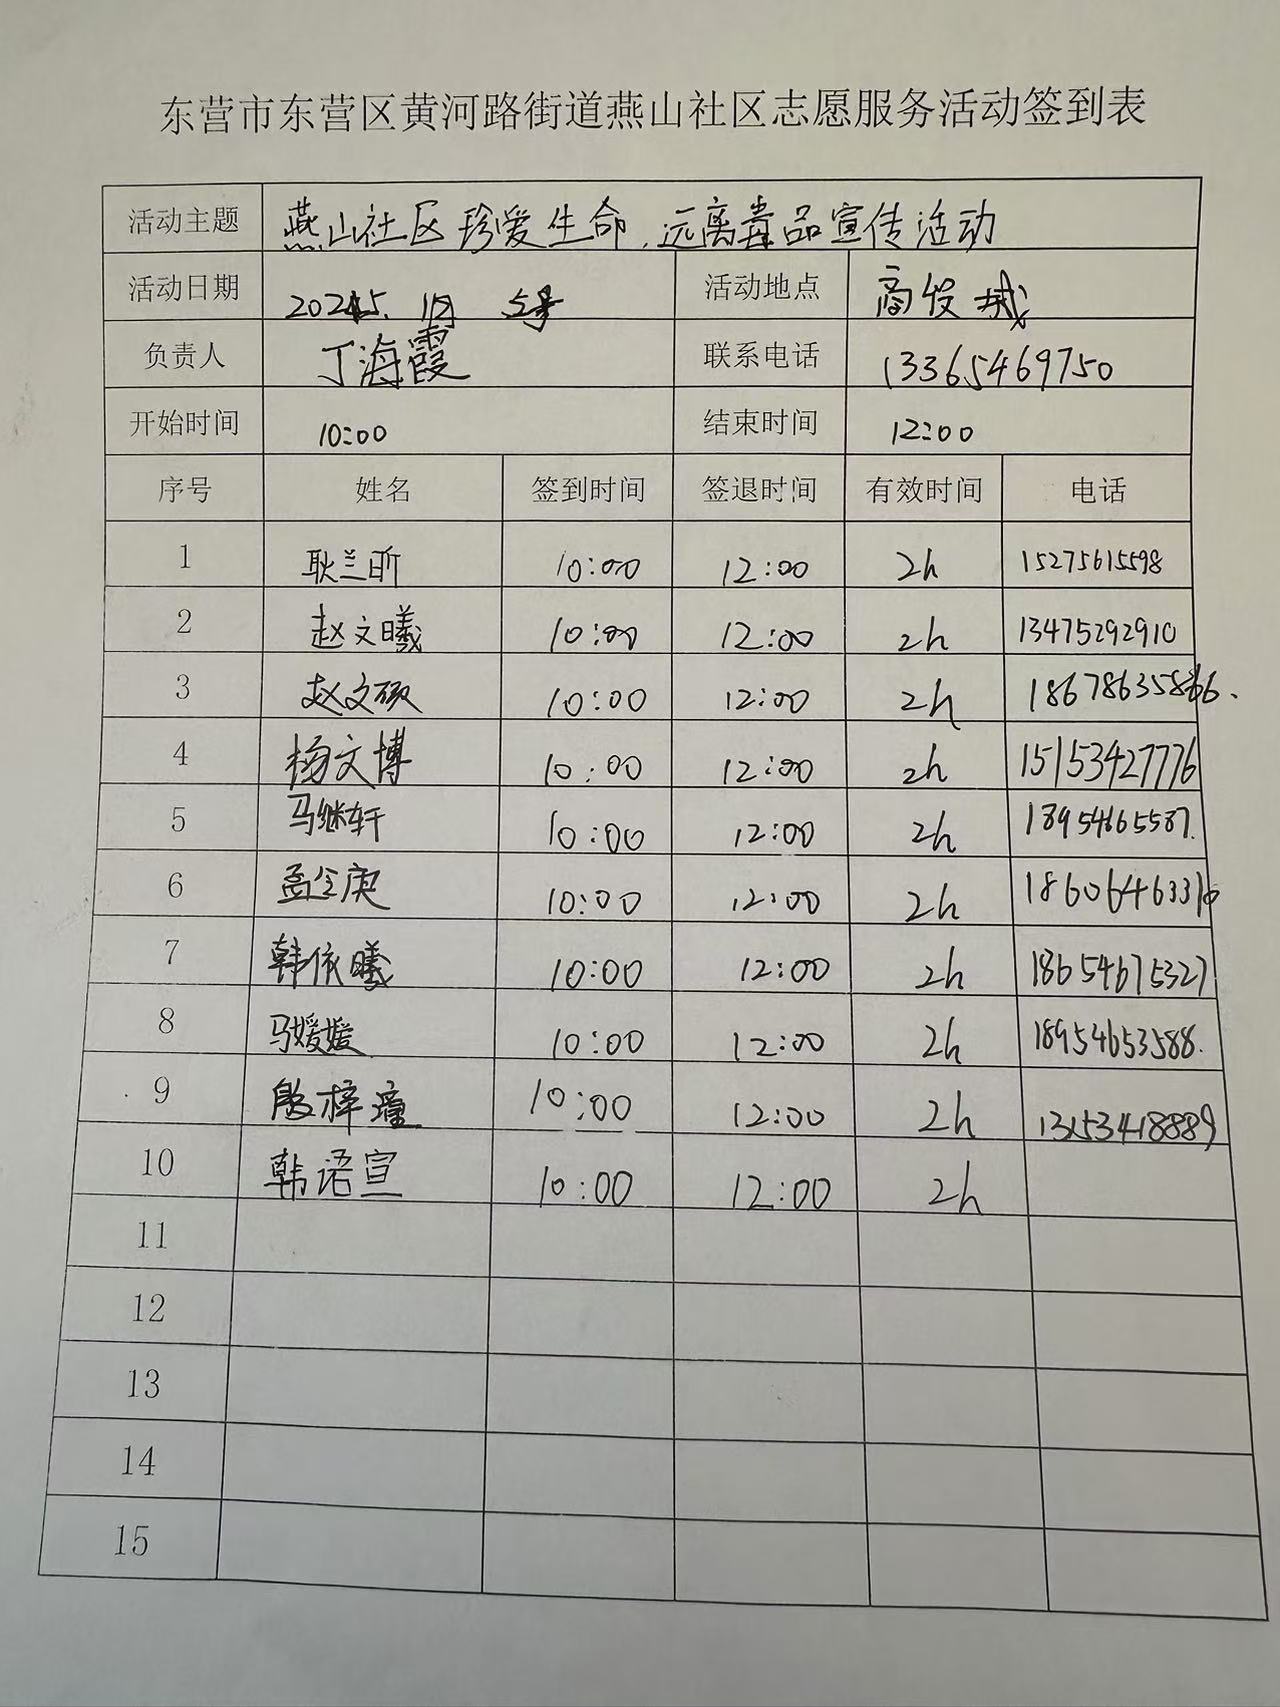 东营市东营区黄河路街道燕山社区志愿服务活动签到表
活动主题 燕山社区珍爱生命、远离毒品宣传活动
活动日期 2025. 1月 5号 活动地点 商投城
负责人 丁海霞 联系电话 13365469750
开始时间 10:00 结束时间 12:00
序号 姓名 签到时间 签退时间 有效时间 电话
1 耿兰昕 10:00 12:00 2h 15275615598
2 赵文曦 10:00 12:00 2h 13475292910
3 赵文硕 10:00 12:00 2h 18678635866.
4 杨文博 10:00 12:00 2h 15153427776
5 马继轩 10:00 12:00 2h 18954665587.
6 孟令庚 10:00 12:00 2h 18606463310
7 韩依曦 10:00 12:00 2h 18654675327
8 马媛媛 10:00 12:00 2h 18954653588.
9 殷梓潼 10:00 12:00 2h
10 韩语宣 10:00 12:00 2h
11
12
13
14
15